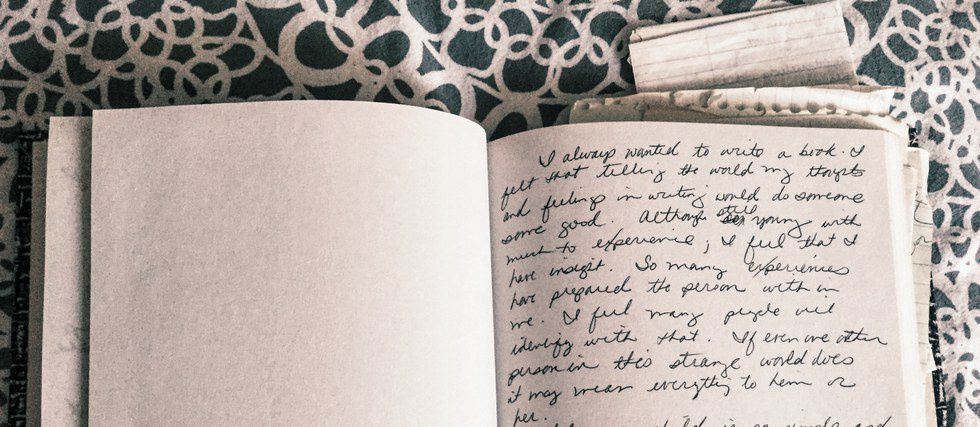 I always wanted to write a book. I
felt that telling the world my thoughts
and feelings in writing would do someone
some good. Although still young with
much to experience; I feel that I
have insight. So many experiences
have prepared the person with in
me. I feel many people will
identify with that. If even one other
person in this strange world does
it may mean everything to him or
her.